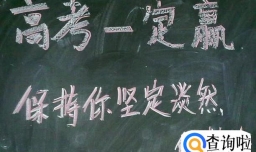 高考一定赢
保持你坚定淡然
查询啦